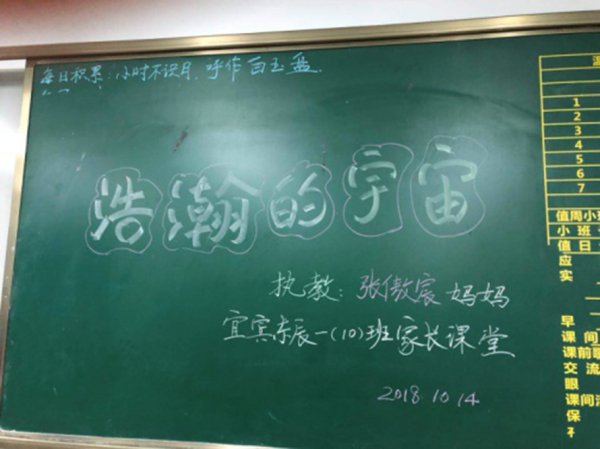 每日积累:小时不识月,呼作白玉盘.
浩瀚的宇宙
执教:张傲宸妈妈
宜宾东辰一(10)班家长课堂
2018.10.14
1
2
3
4
5
6
7
值周小班
小班
值日
应
实
早
课间
课前
交流
眼
课间
保